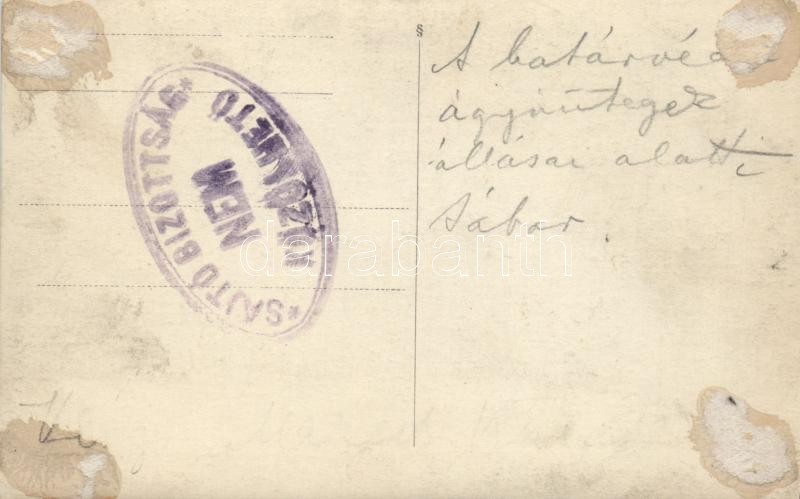 §
A határvédő
ágyúütegek
állásai alatti
tábor.
SAJTÓ BIZOTTSÁG
NEM
KÖZÖLHETŐ
darabanth